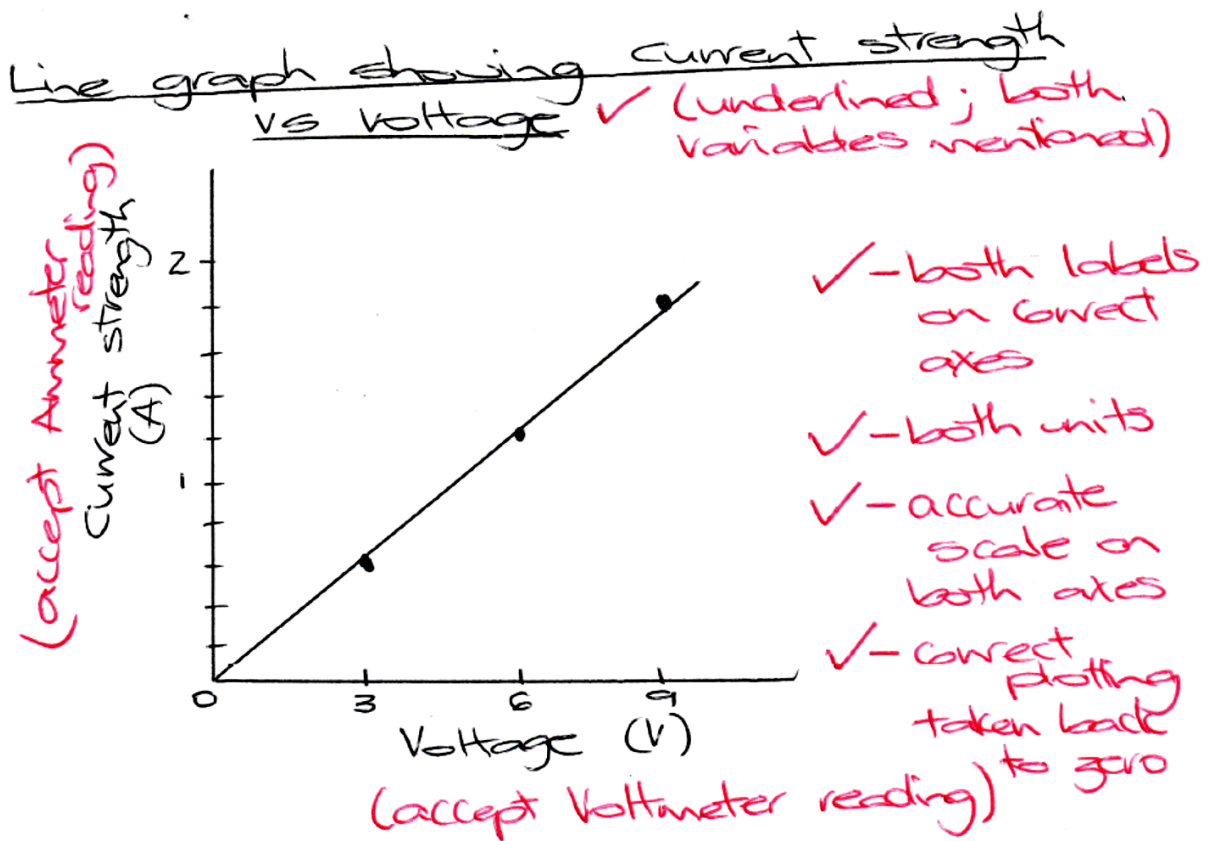 Line graph showing current strength
vs voltage ✓ (underlined; both
variables mentioned)
(accept Ammeter
reading)
Current strength
(A)
2
1
0 3 6 9
Voltage (V)
(accept Voltmeter reading)
✓ - both labels
on correct
axes
✓ - both units
✓ - accurate
scale on
both axes
✓ - correct
plotting
taken back
to zero